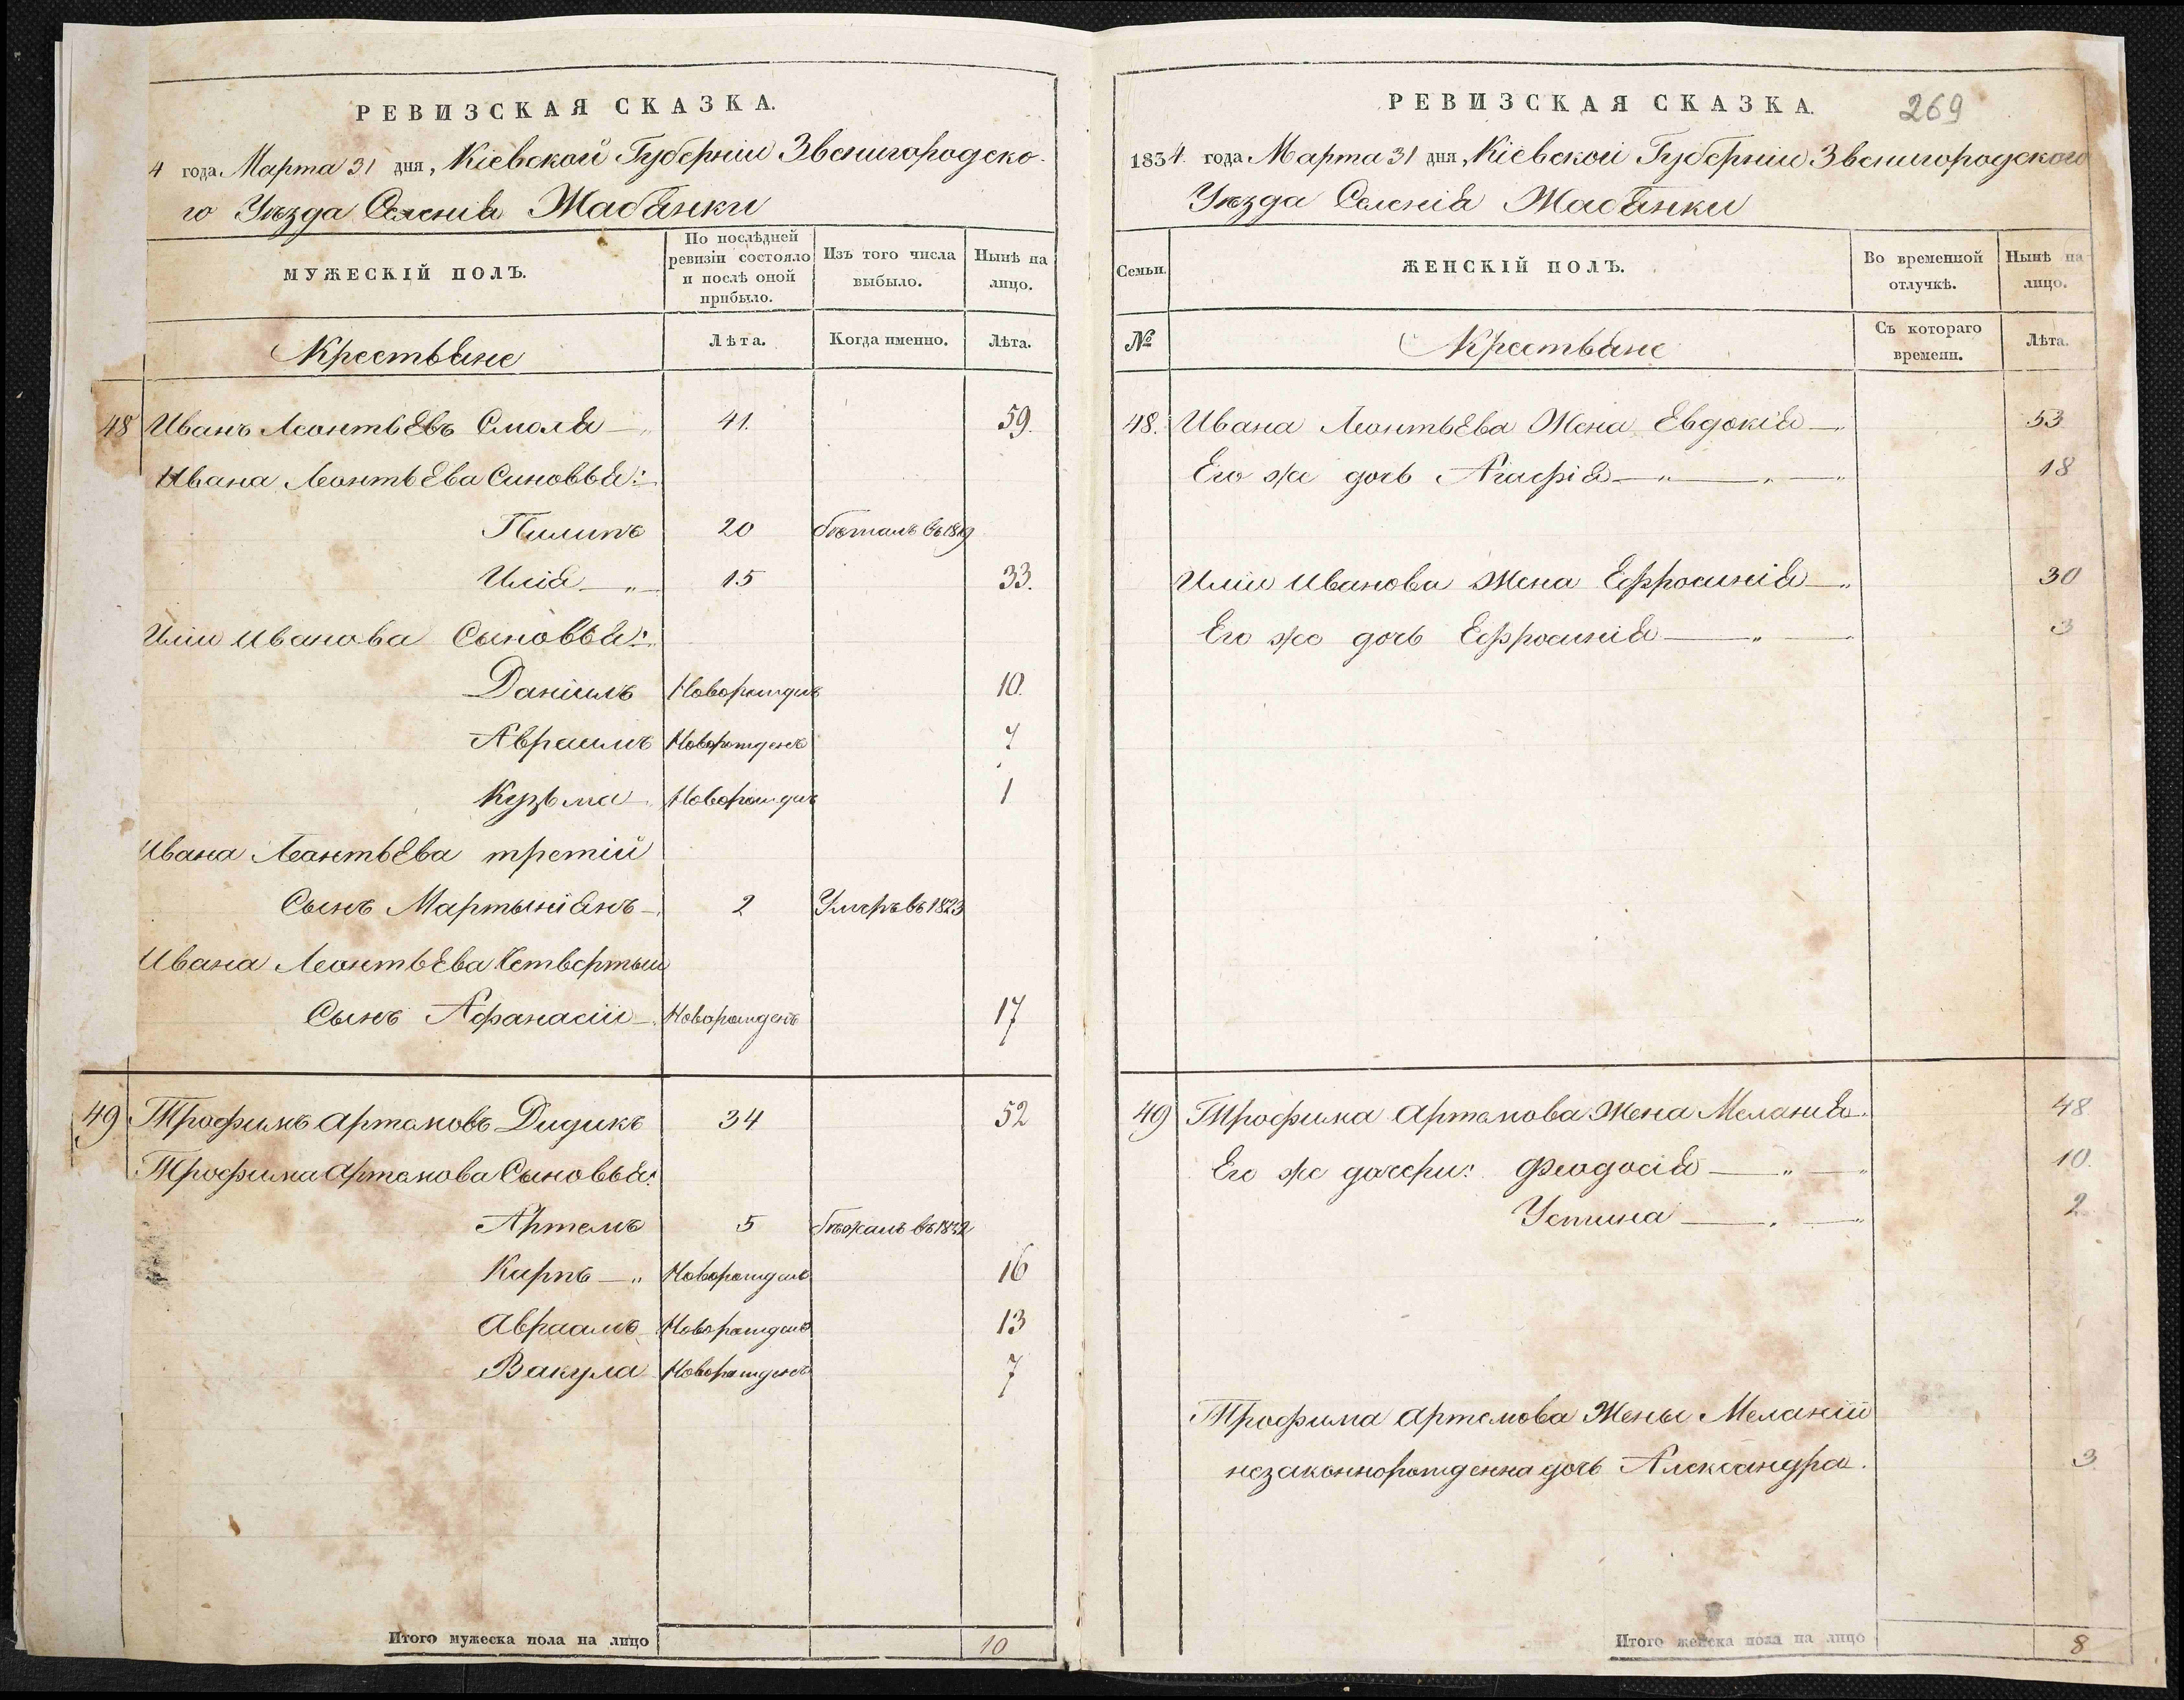 РЕВИЗСКАЯ СКАЗКА.
4 года Марта 31 дня, Кіевской Губерніи Звенигородско-
го Уѣзда Селенія Жабянки
МУЖЕСКІЙ ПОЛЪ.
По послѣдней ревизіи состояло и послѣ оной прибыло.
Изъ того числа выбыло.
Нынѣ на лицо.
Крестьяне
Лѣта.
Когда именно.
Лѣта.
48 Иванъ Леонтьевъ Смоля 41. 59.
Ивана Леонтьева Синовья:
Пилипъ 20 въ 1819
Илія 15 33.
Иліи Иванова Сыновья:
Даніилъ Новорожденъ 10.
Авраамъ Новорожденъ 7
Кузьма Новорожденъ 1
Ивана Леонтьева третій
Сынъ Мартыніянъ 2 Умеръ въ 1823
Ивана Леонтьева Четвертый
Сынъ Афанасій Новорожденъ 17
49 Трофимъ Артемовъ Дидикъ 34 52
Трофима Артемова Сыновья:
Артемъ 5 Бѣжалъ въ 1832
Карпъ Новорожденъ 16
Авраамъ Новорожденъ 13
Вакула Новорожденъ 7
Итого мужеска пола на лицо 10
РЕВИЗСКАЯ СКАЗКА. 269
1834 года Марта 31 дня, Кіевской Губерніи Звенигородского
Уѣзда Селенія Жабянки
Семьи.
ЖЕНСКІЙ ПОЛЪ.
Во временной отлучкѣ.
Нынѣ на лицо.
№
Крестьяне
Съ котораго времени.
Лѣта.
48. Ивана Леонтьева Жена Евдокія 53
Его же дочь Агафія 18
Иліи Иванова Жена Ефросинія 30
Его же дочь Ефросинія 3
49 Трофима Артемова Жена Меланія 48
Его же дочери: Феодосія 10.
Устина 2
Трофима Артемова Жены Меланіи
незаконнорожденна дочь Александра. 3.
Итого женска пола на лицо 8